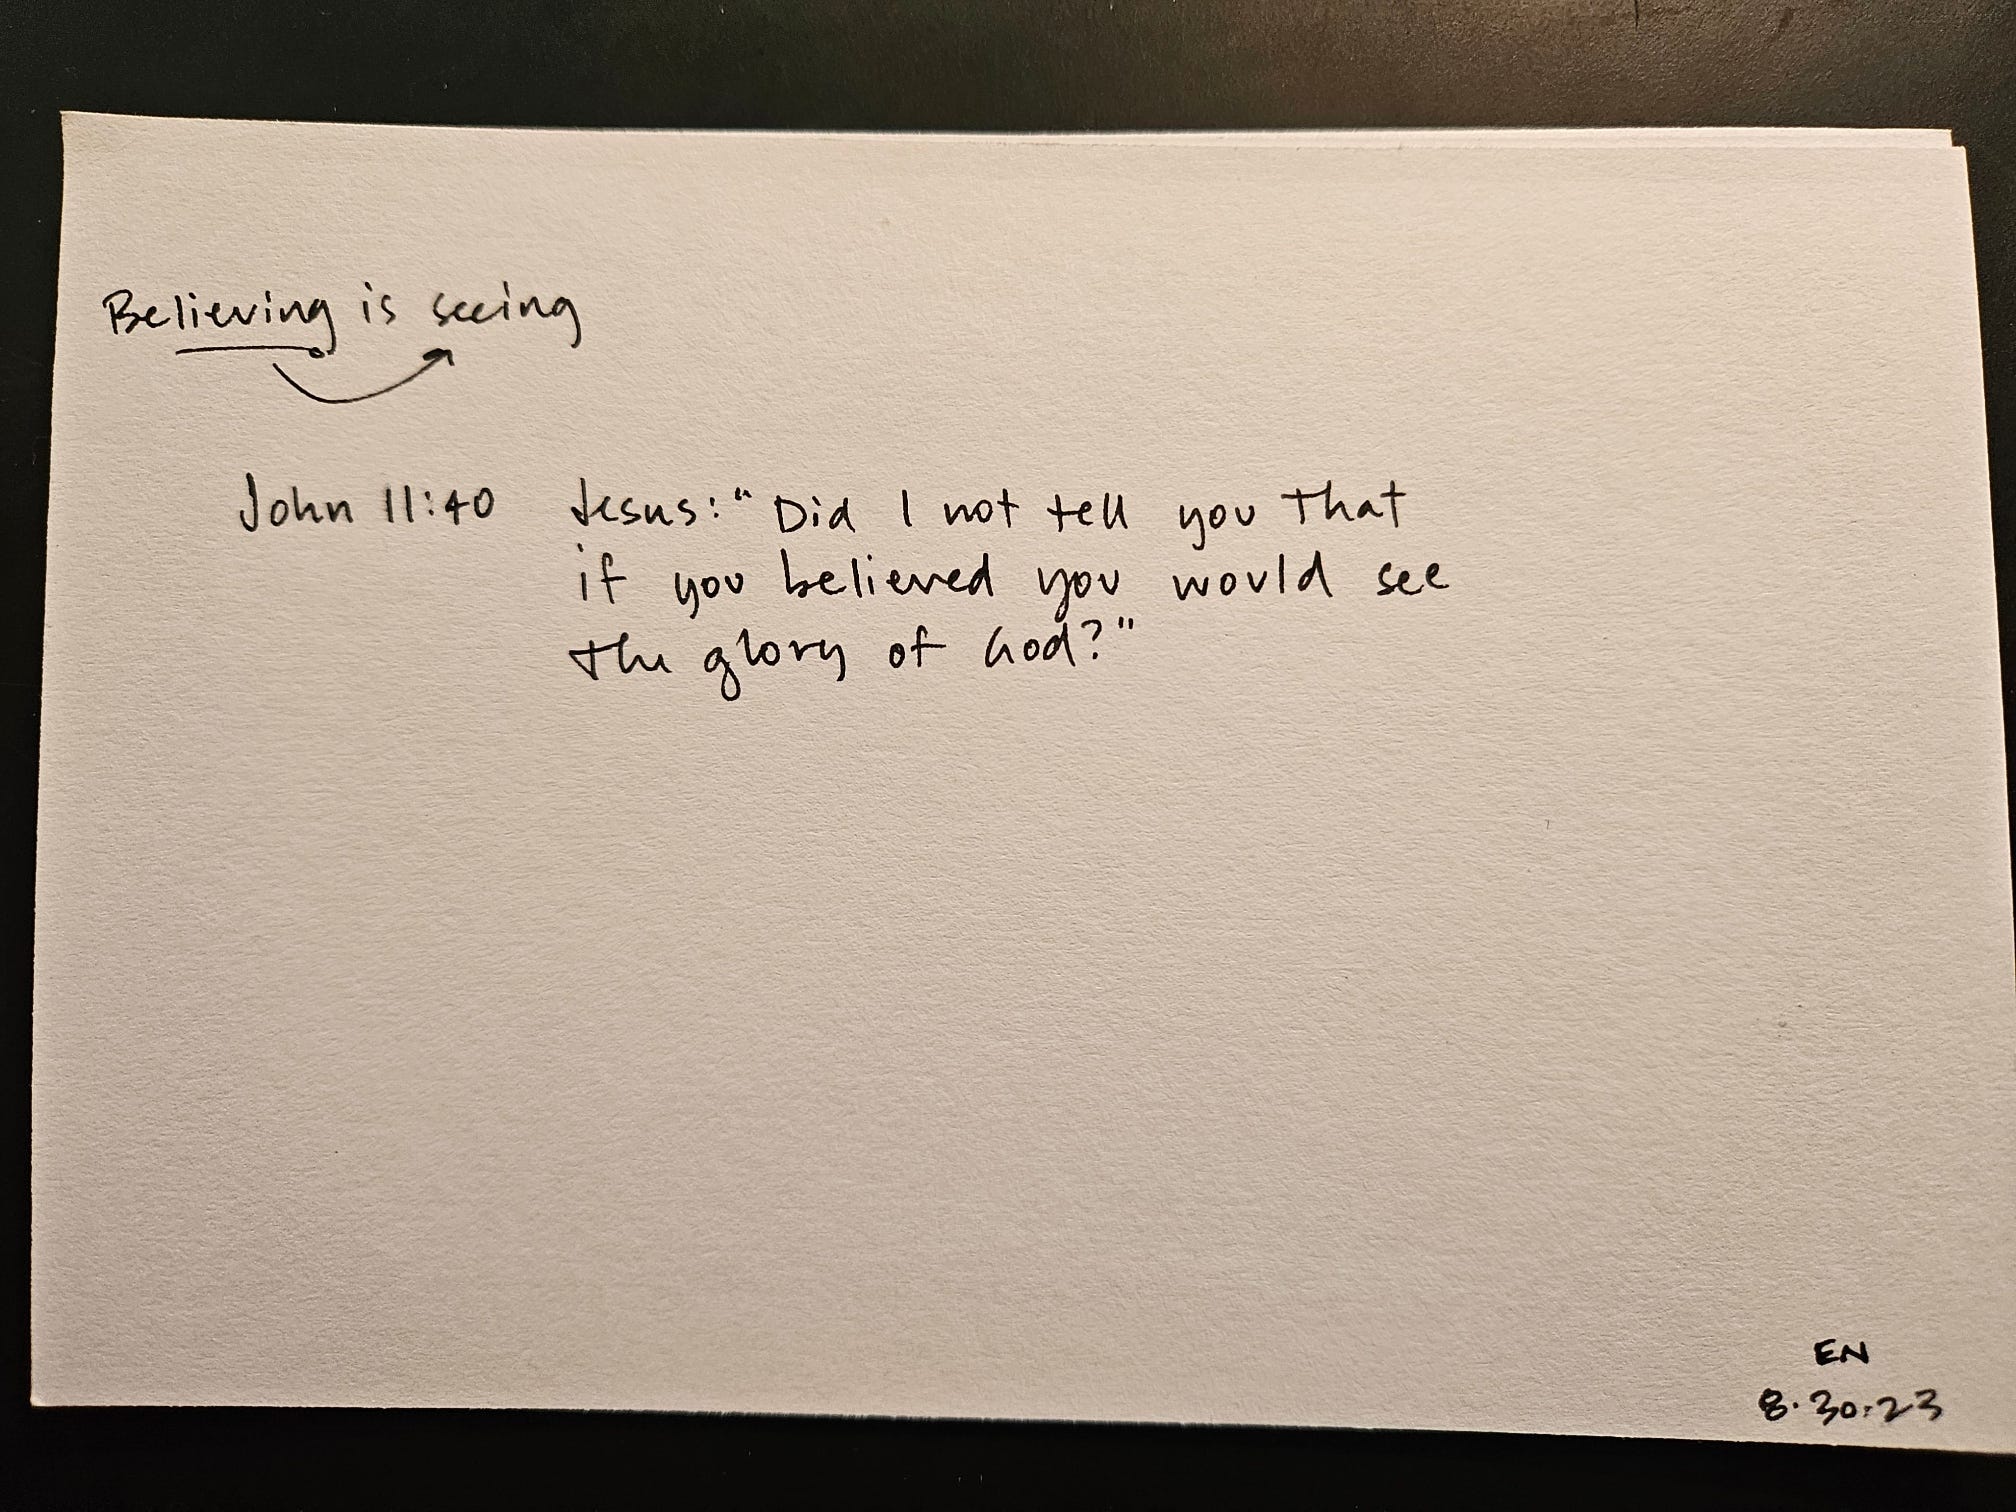 Believing is seeing
John 11:40 Jesus: "Did I not tell you that
if you believed you would see
the glory of God?"
EN
8.30.23